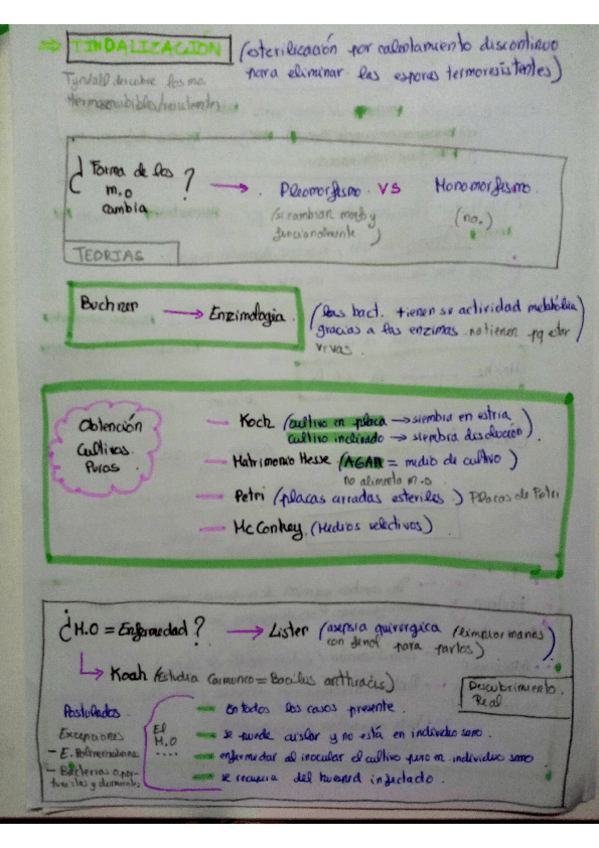 ⇒ TINDALIZACIÓN (esterilización por calentamiento discontinuo
para eliminar las esporas termoresistentes)
Tyndall descubre formas
termosensibles/resistentes
¿Forma de los
m.o
cambia?
→ Pleomorfismo VS Monomorfismo.
(si cambian morfo y
funcionalmente)
(no.)
TEORIAS
Buchner → Enzimologia.
(las bact. tienen su actividad metabólica
gracias a las enzimas no tienen pq estar
vivas.
Obtención
Cultivos
Puros.
— Koch (cultivo en placa → siembra en estria
cultivo inclinado → siembra disolución).
— Matrimonio Hesse (AGAR = medio de cultivo)
no alimento m.o
— Petri (placas cerradas esteriles.) Placas de Petri
— McConkey (Medios selectivos).
¿M.O = Enfermedad? → Lister (asepsia quirurgica (limpiar manos)
con fenol para partos)
↳ Koah (estudia Carbunco = Bacilus anthracis)
Descubrimiento
Real
Postulados
Excepciones
– E. Polimicrobiana
– Bacterias opor-
tunistas y durmientes
El
M.O
....
— en todos los casos presente.
— se puede aislar y no está en individuo sano.
— enfermedar al inocular el cultivo puro en individuo sano
— se recupera del huesped infectado.